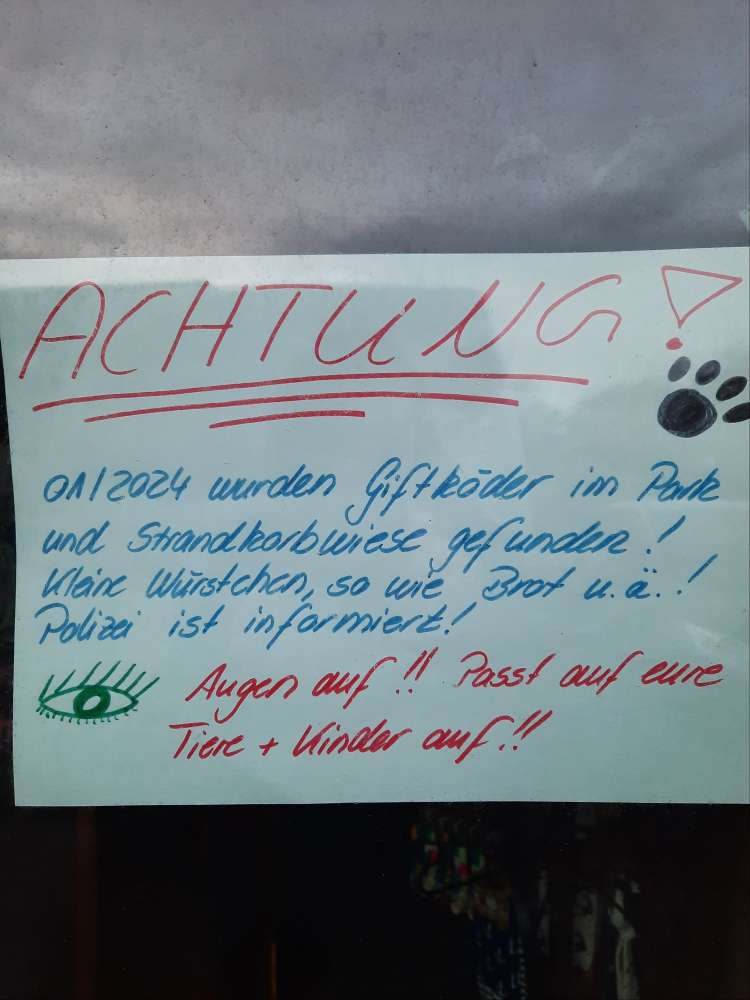 ACHTUNG!
01/2024 wurden Giftköder im Park
und Strandkorbwiese gefunden!
Kleine Würstchen, so wie Brot u.ä.!
Polizei ist informiert!
Augen auf!! Passt auf eure
Tiere + Kinder auf!!